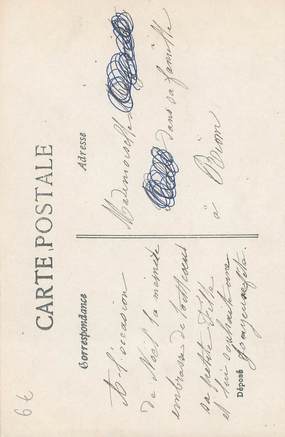 CARTE POSTALE
Correspondance
Adresse
A l'occasion
de Noël la
embrasse de tout cœur
sa petite fille
et lui souhaite une
Mademoiselle
dans sa famille
à Riom
Déposé
6 €